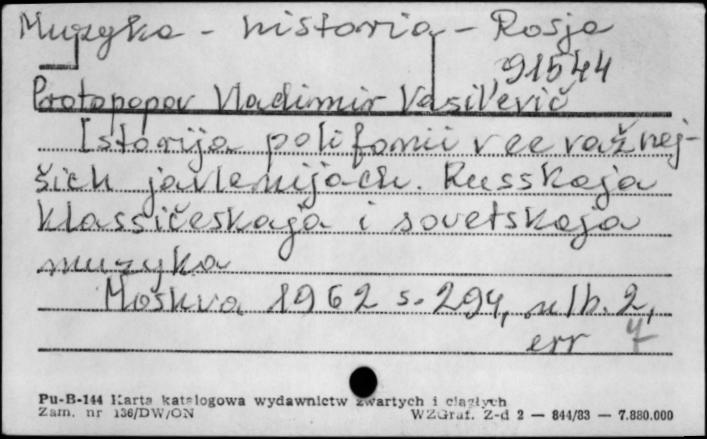 Muzyka - historia - Rosja
91544
Protopopov Vladimir Vasil'evič
Istorija polifonii v ee važnej-
šich javlenijach. Russkaja
klassičeskaja i sovetskaja
muzyka
Moskva 1962 s. 294, nlb. 2,
err 4
Pu-B-144 Karta katalogowa wydawnictw zwartych i ciągłych
Zam. nr 136/DW/ON WZGraf. Z-d 2 — 844/83 — 7.880.000